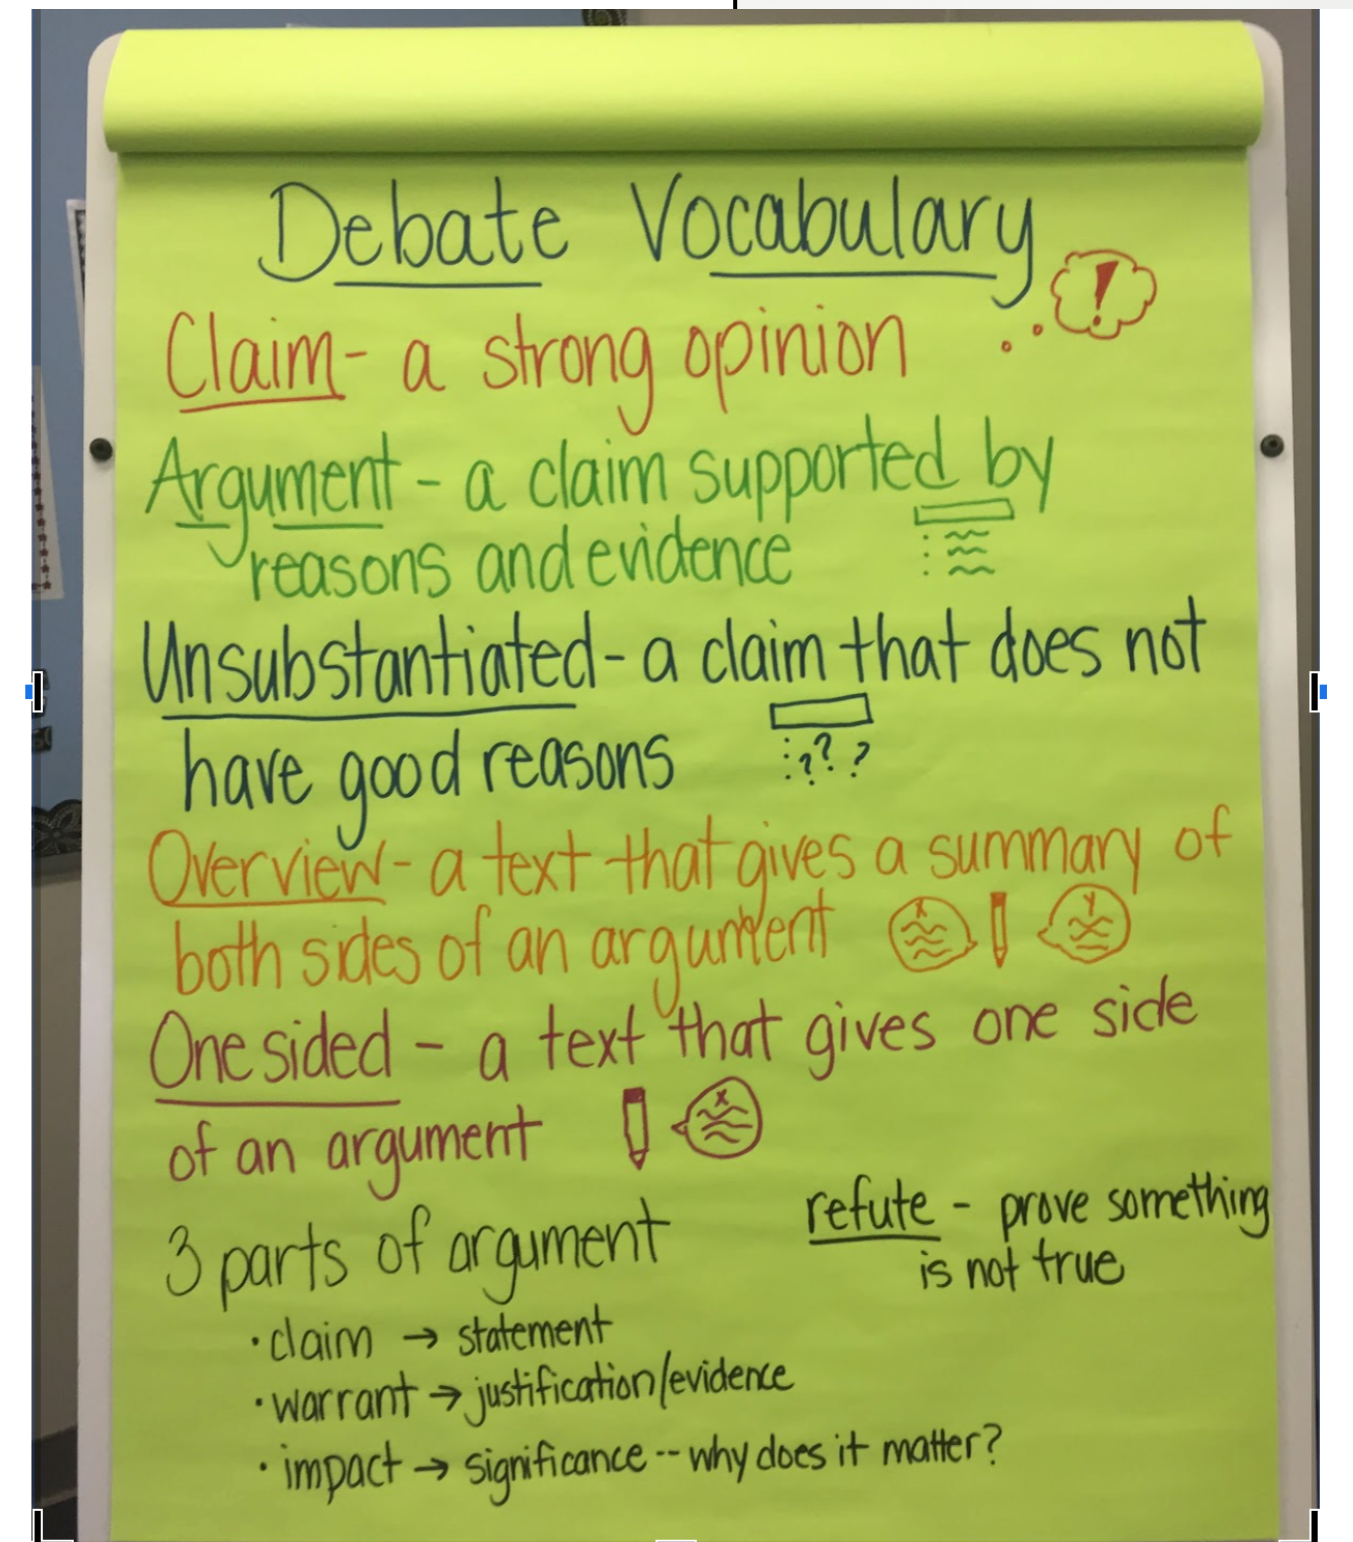 Debate Vocabulary
!
Claim- a strong opinion
Argument - a claim supported by
reasons and evidence
Unsubstantiated- a claim that does not
have good reasons
???
Overview- a text that gives a summary of
both sides of an argument
X
Y
One sided - a text that gives one side
of an argument
X
3 parts of argument
• claim → statement
• warrant → justification/evidence
• impact → significance -- why does it matter?
refute - prove something
is not true